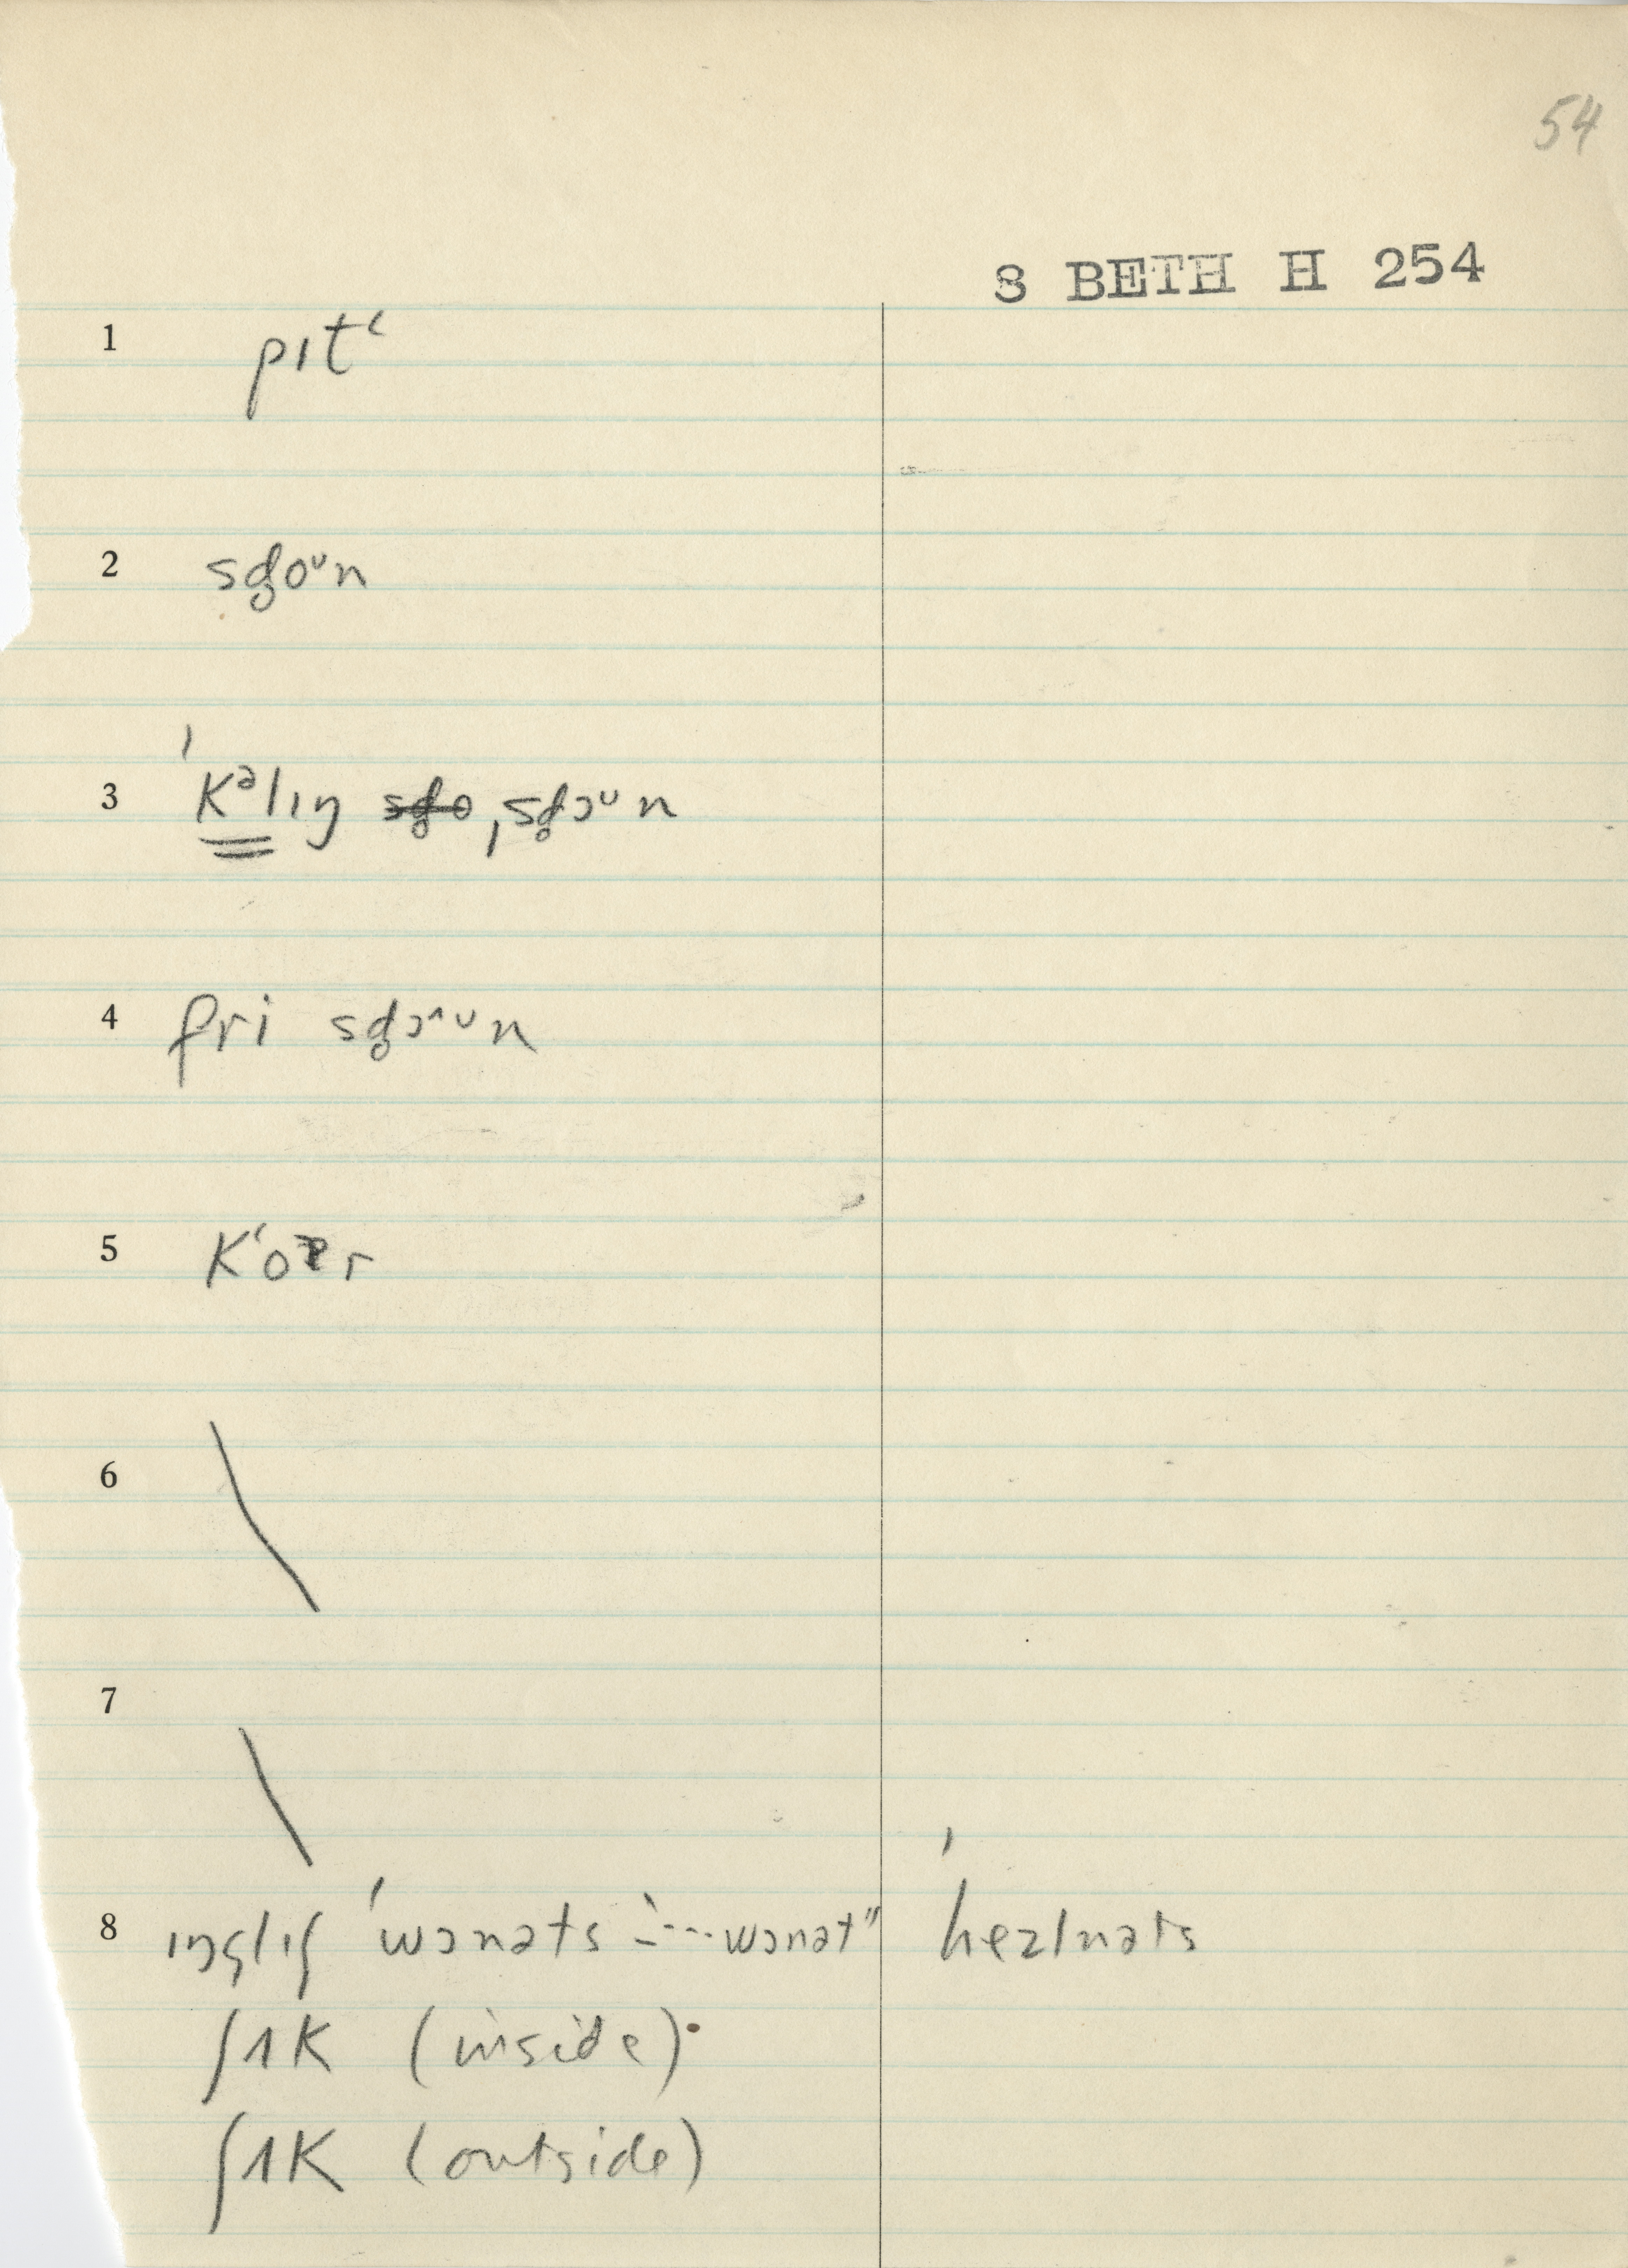 54
8 BETH H 254
1 pɪtʻ
2 sd̥oᴜn
3 ˈkᵊlɪŋ ˌsd̥ɔᴜn
4 fri sd̥ɔ^ᴜn
5 Kʻor
6
7
8 ɪŋglɪʃ ˈwɔnəts ˈhezlnəts
ʃʌK (inside)
ʃʌK (outside)